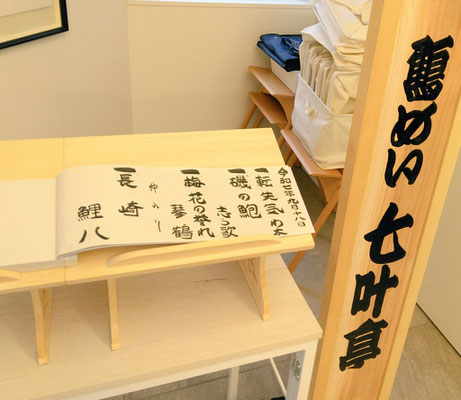 めい 七叶亭
令和七年九月十八日
一転失気 わ太
一磯の鮑 志う歌
一梅花の誉れ 琴鶴
仲入り
一長崎 鯉八